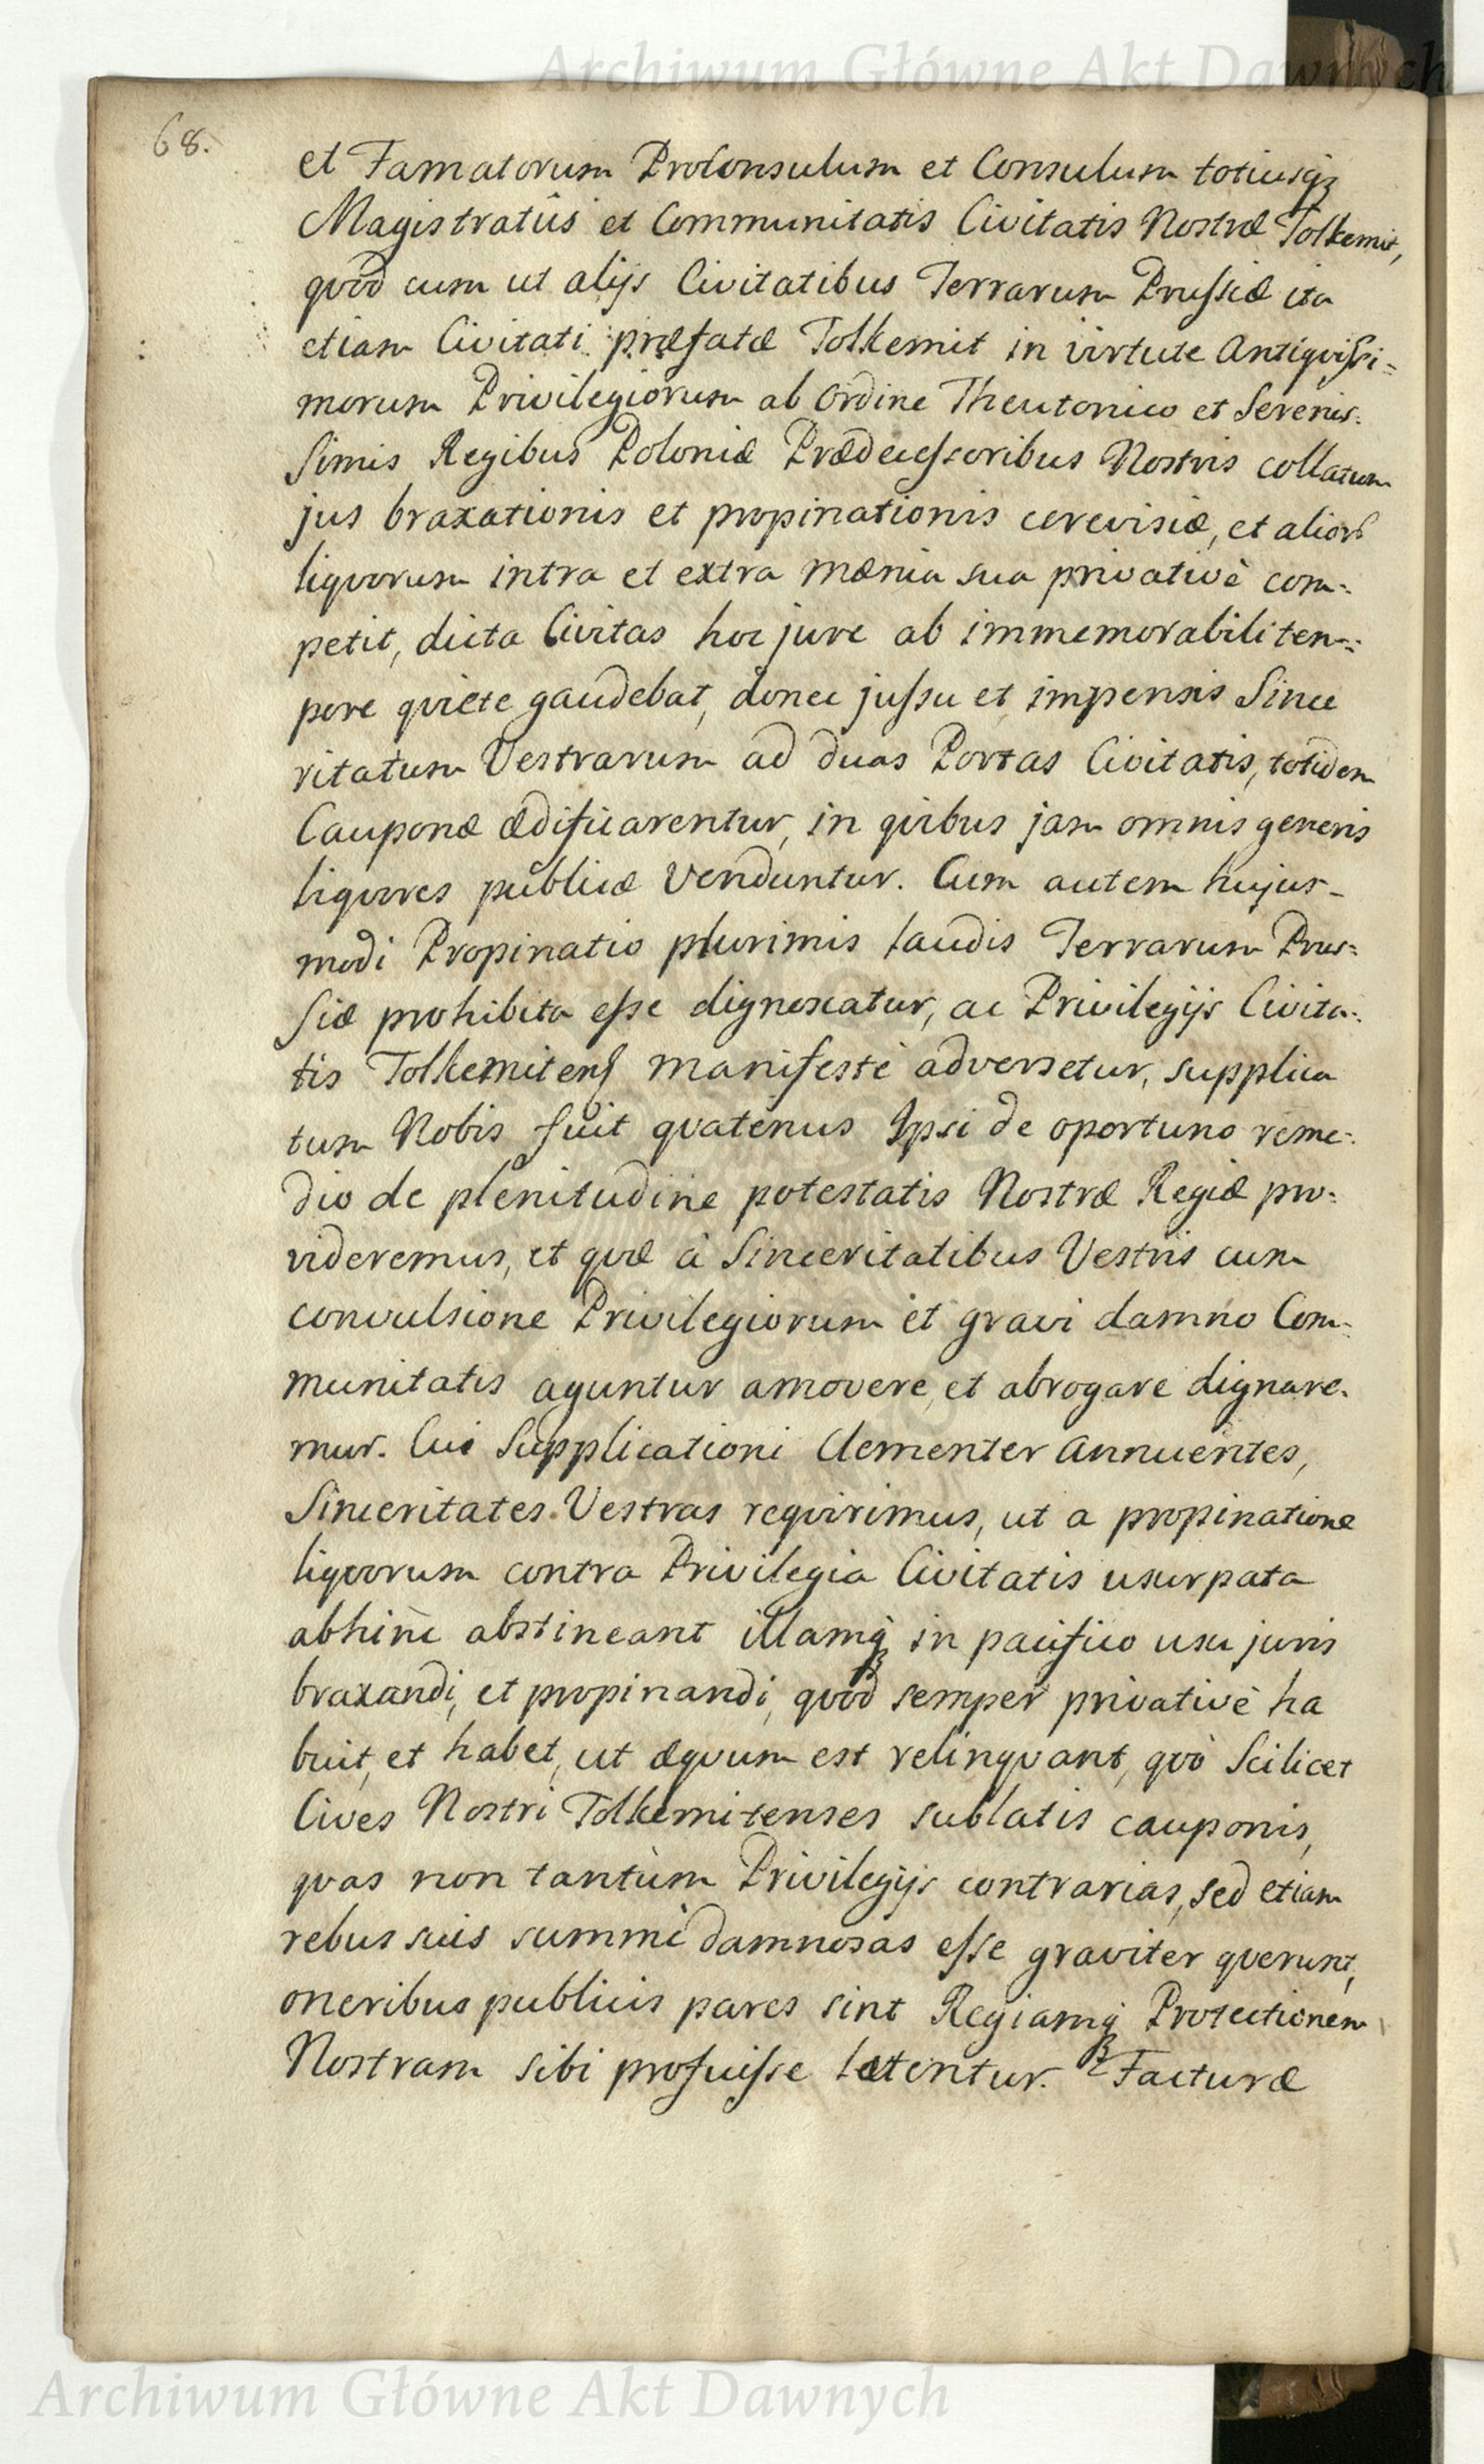 Archiwum Główne Akt Dawnych
68.
et Famatorum Proconsulum et Consulum totiusqꝫ
Magistratûs et Communitatis Civitatis Nostræ Tolkemit,
quòd cum ut alijs Civitatibus Terrarum Prussiæ ita
etiam Civitati præfatæ Tolkemit in virtute Antiquissi=
morum Privilegiorum ab Ordine Theutonico et Serenis=
Simis Regibus Poloniæ Prædecessoribus Nostris collatum
jus braxationis et propinationis cerevisiæ, et alior
liquorum intra et extra mænia sua privativè com=
petit, dicta Civitas hoc jure ab immemorabili tem=
pore quiete gaudebat, donec jussu et impensis Since
ritatum Vestrarum ad duas Portas Civitatis, totidem
Cauponæ ædificarentur, in quibus jam omnis generis
liquores publicæ venduntur. Cum autem hujus-
modi Propinatio plurimis laudis Terrarum Prus=
Siæ prohibita esse dignoscatur, ac Privilegijs Civita=
tis Tolkemitens manifestè adversetur, supplica
tum Nobis fuit quatenus Ipsi de oportuno reme=
dio de plenitudine potestatis Nostræ Regiæ pro=
videremus, et quæ à Sinceritatibus Vestris cum
convulsione Privilegiorum et gravi damno Com=
munitatis aguntur amovere, et abrogare dignare=
mur. Cui Supplicationi Clementer Annuentes,
Sinceritates Vestras requirimus, ut a propinatione
liquorum contra Privilegia Civitatis usurpata
abhinc abstineant illamqꝫ in pacifico usu juris
braxandi, et propinandi, quòd semper privativè ha
buit, et habet, ut æquum est relinquant, quò Scilicet
Cives Nostri Tolkemitenses sublatis cauponis,
quas non tantùm Privilegijs contrarias, sed etiam
rebus suis summè damnosas esse graviter querunt,
oneribus publicis pares sint Regiamqꝫ Protectionem
Nostram sibi profuisse lætentur. Facturæ
Archiwum Główne Akt Dawnych